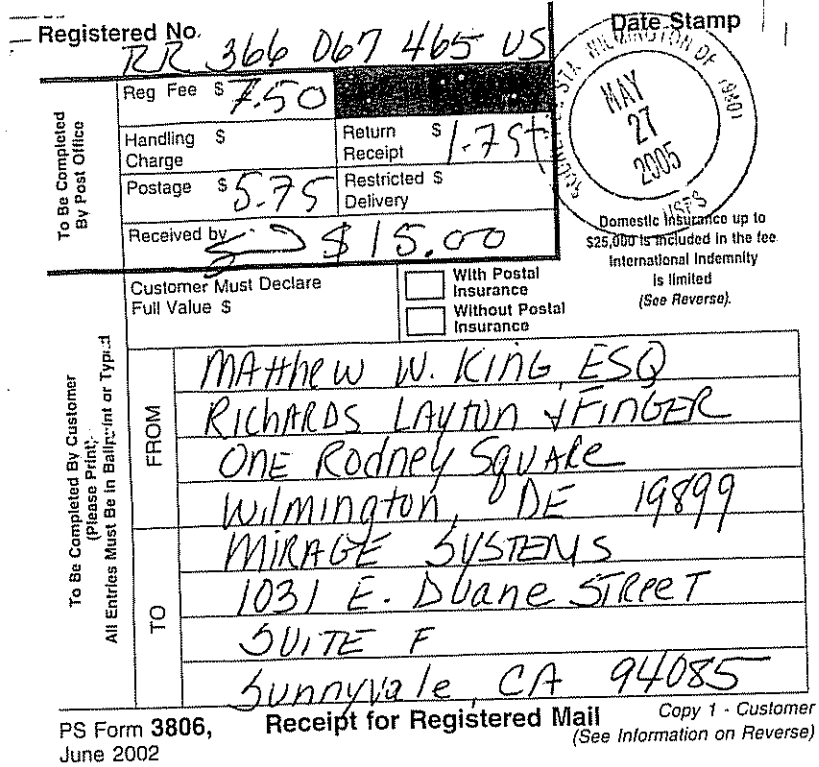 Registered No.
RR 366 067 465 US
Date Stamp
To Be Completed
By Post Office
Reg Fee $ 7.50
Handling $
Charge
Return $ 1.75
Receipt
Postage $ 5.75
Restricted $
Delivery
Received by $15.00
STA WILMINGTON DE 19801
MAY
27
2005
USPS
Domestic Insurance up to
$25,000 is included in the fee
International Indemnity
is limited
(See Reverse).
Customer Must Declare
Full Value $
With Postal
Insurance
Without Postal
Insurance
To Be Completed By Customer
(Please Print)
All Entries Must Be in Ballpoint or Typed
FROM
MAtthew W. KinG ESQ
RIChARDS LAyton & FinGER
OnE Rodney SQUARe
Wilmington, DE 19899
TO
MiRAGE SYSTEMS
1031 E. Duane STReeT
SUiTE F
Sunnyvale, CA 94085
PS Form 3806,
June 2002
Receipt for Registered Mail
Copy 1 - Customer
(See Information on Reverse)